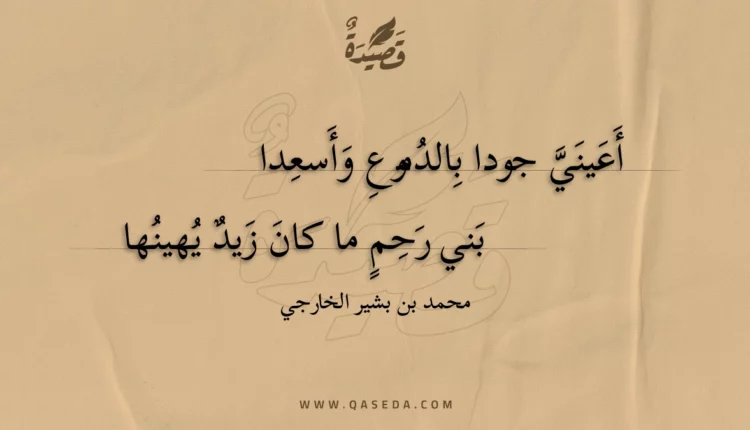 قَصِيدَةٌ
أَعَينَيَّ جودا بِالدُموعِ وَأَسعِدا
بَني رَحِمٍ ما كانَ زَيدٌ يُهينُها
محمد بن بشير الخارجي
WWW.QASEDA.COM